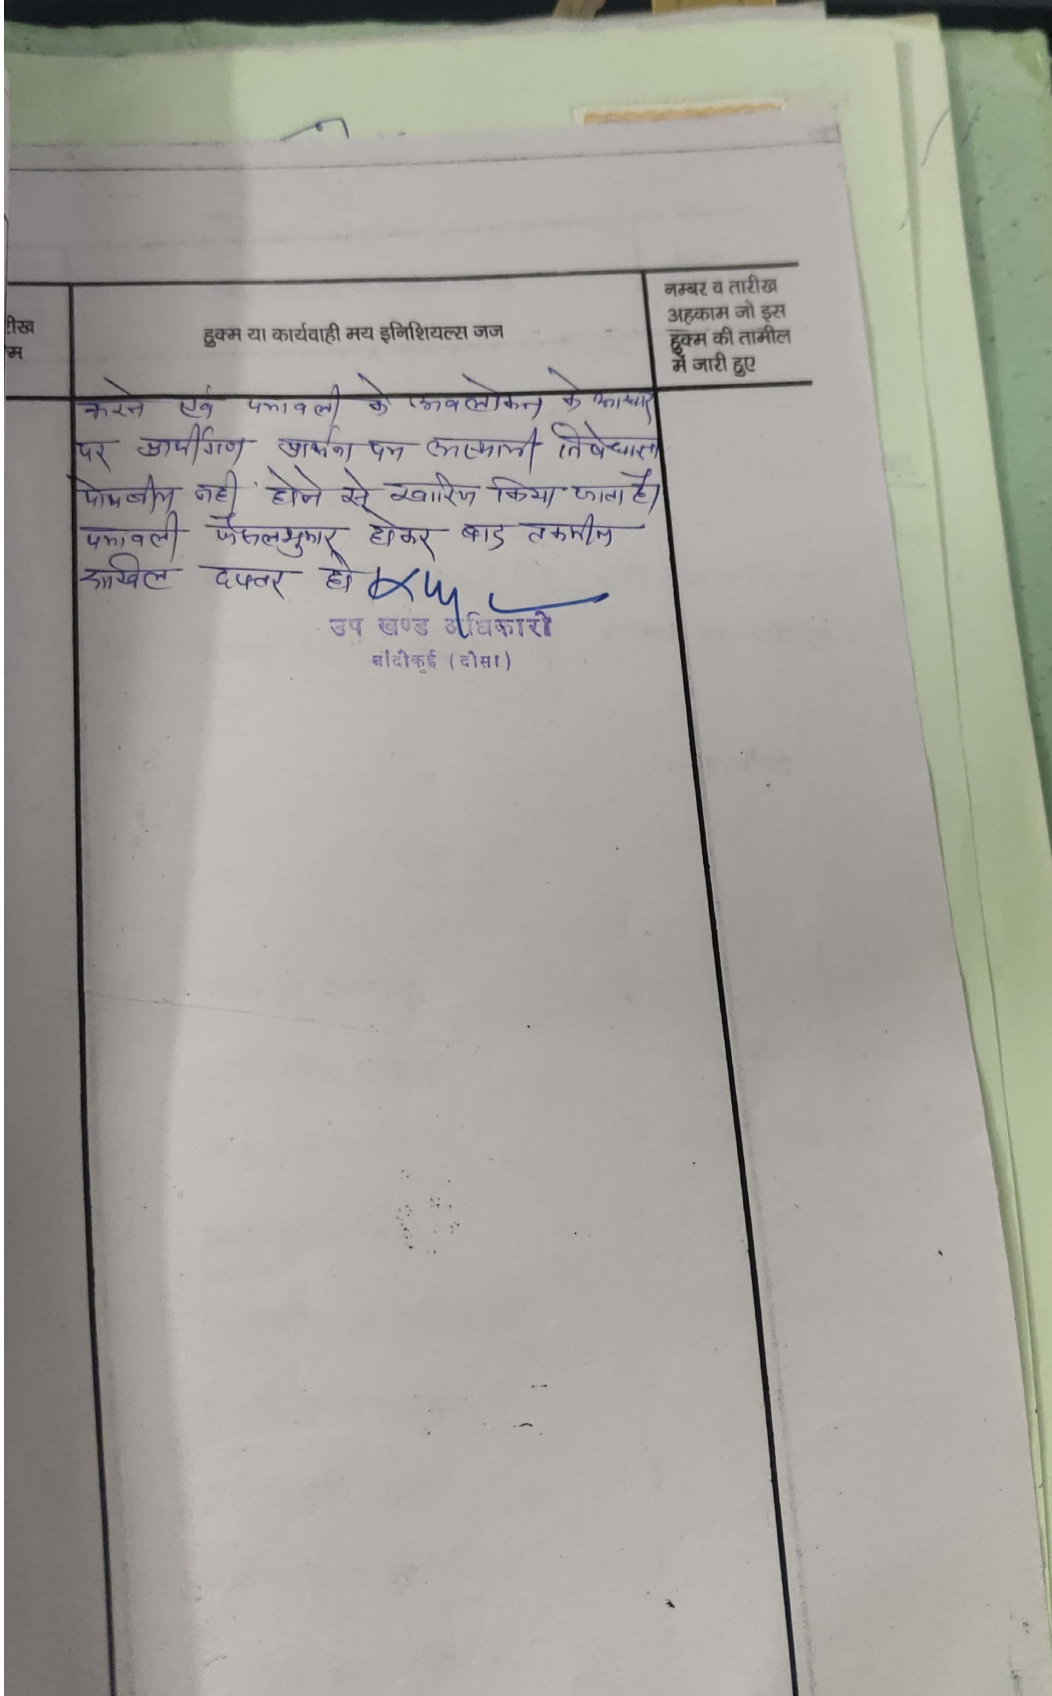 तारीख
हुक्म
हुक्म या कार्यवाही मय इनिशियल्स जज
नम्बर व तारीख
अहकाम जो इस
हुक्म की तामील
में जारी हुए
करने एवं पत्रावली के अवलोकन के आधार
पर प्रार्थीगण प्रार्थना पत्र अस्थायी निषेधाज्ञा
पोषनीय नही होने से खारिज किया जाता है।
पत्रावली फैसलशुमार होकर बाद तकमील
दाखिल दफ्तर हो
उप खण्ड अधिकारी
बांदीकुई (दौसा)